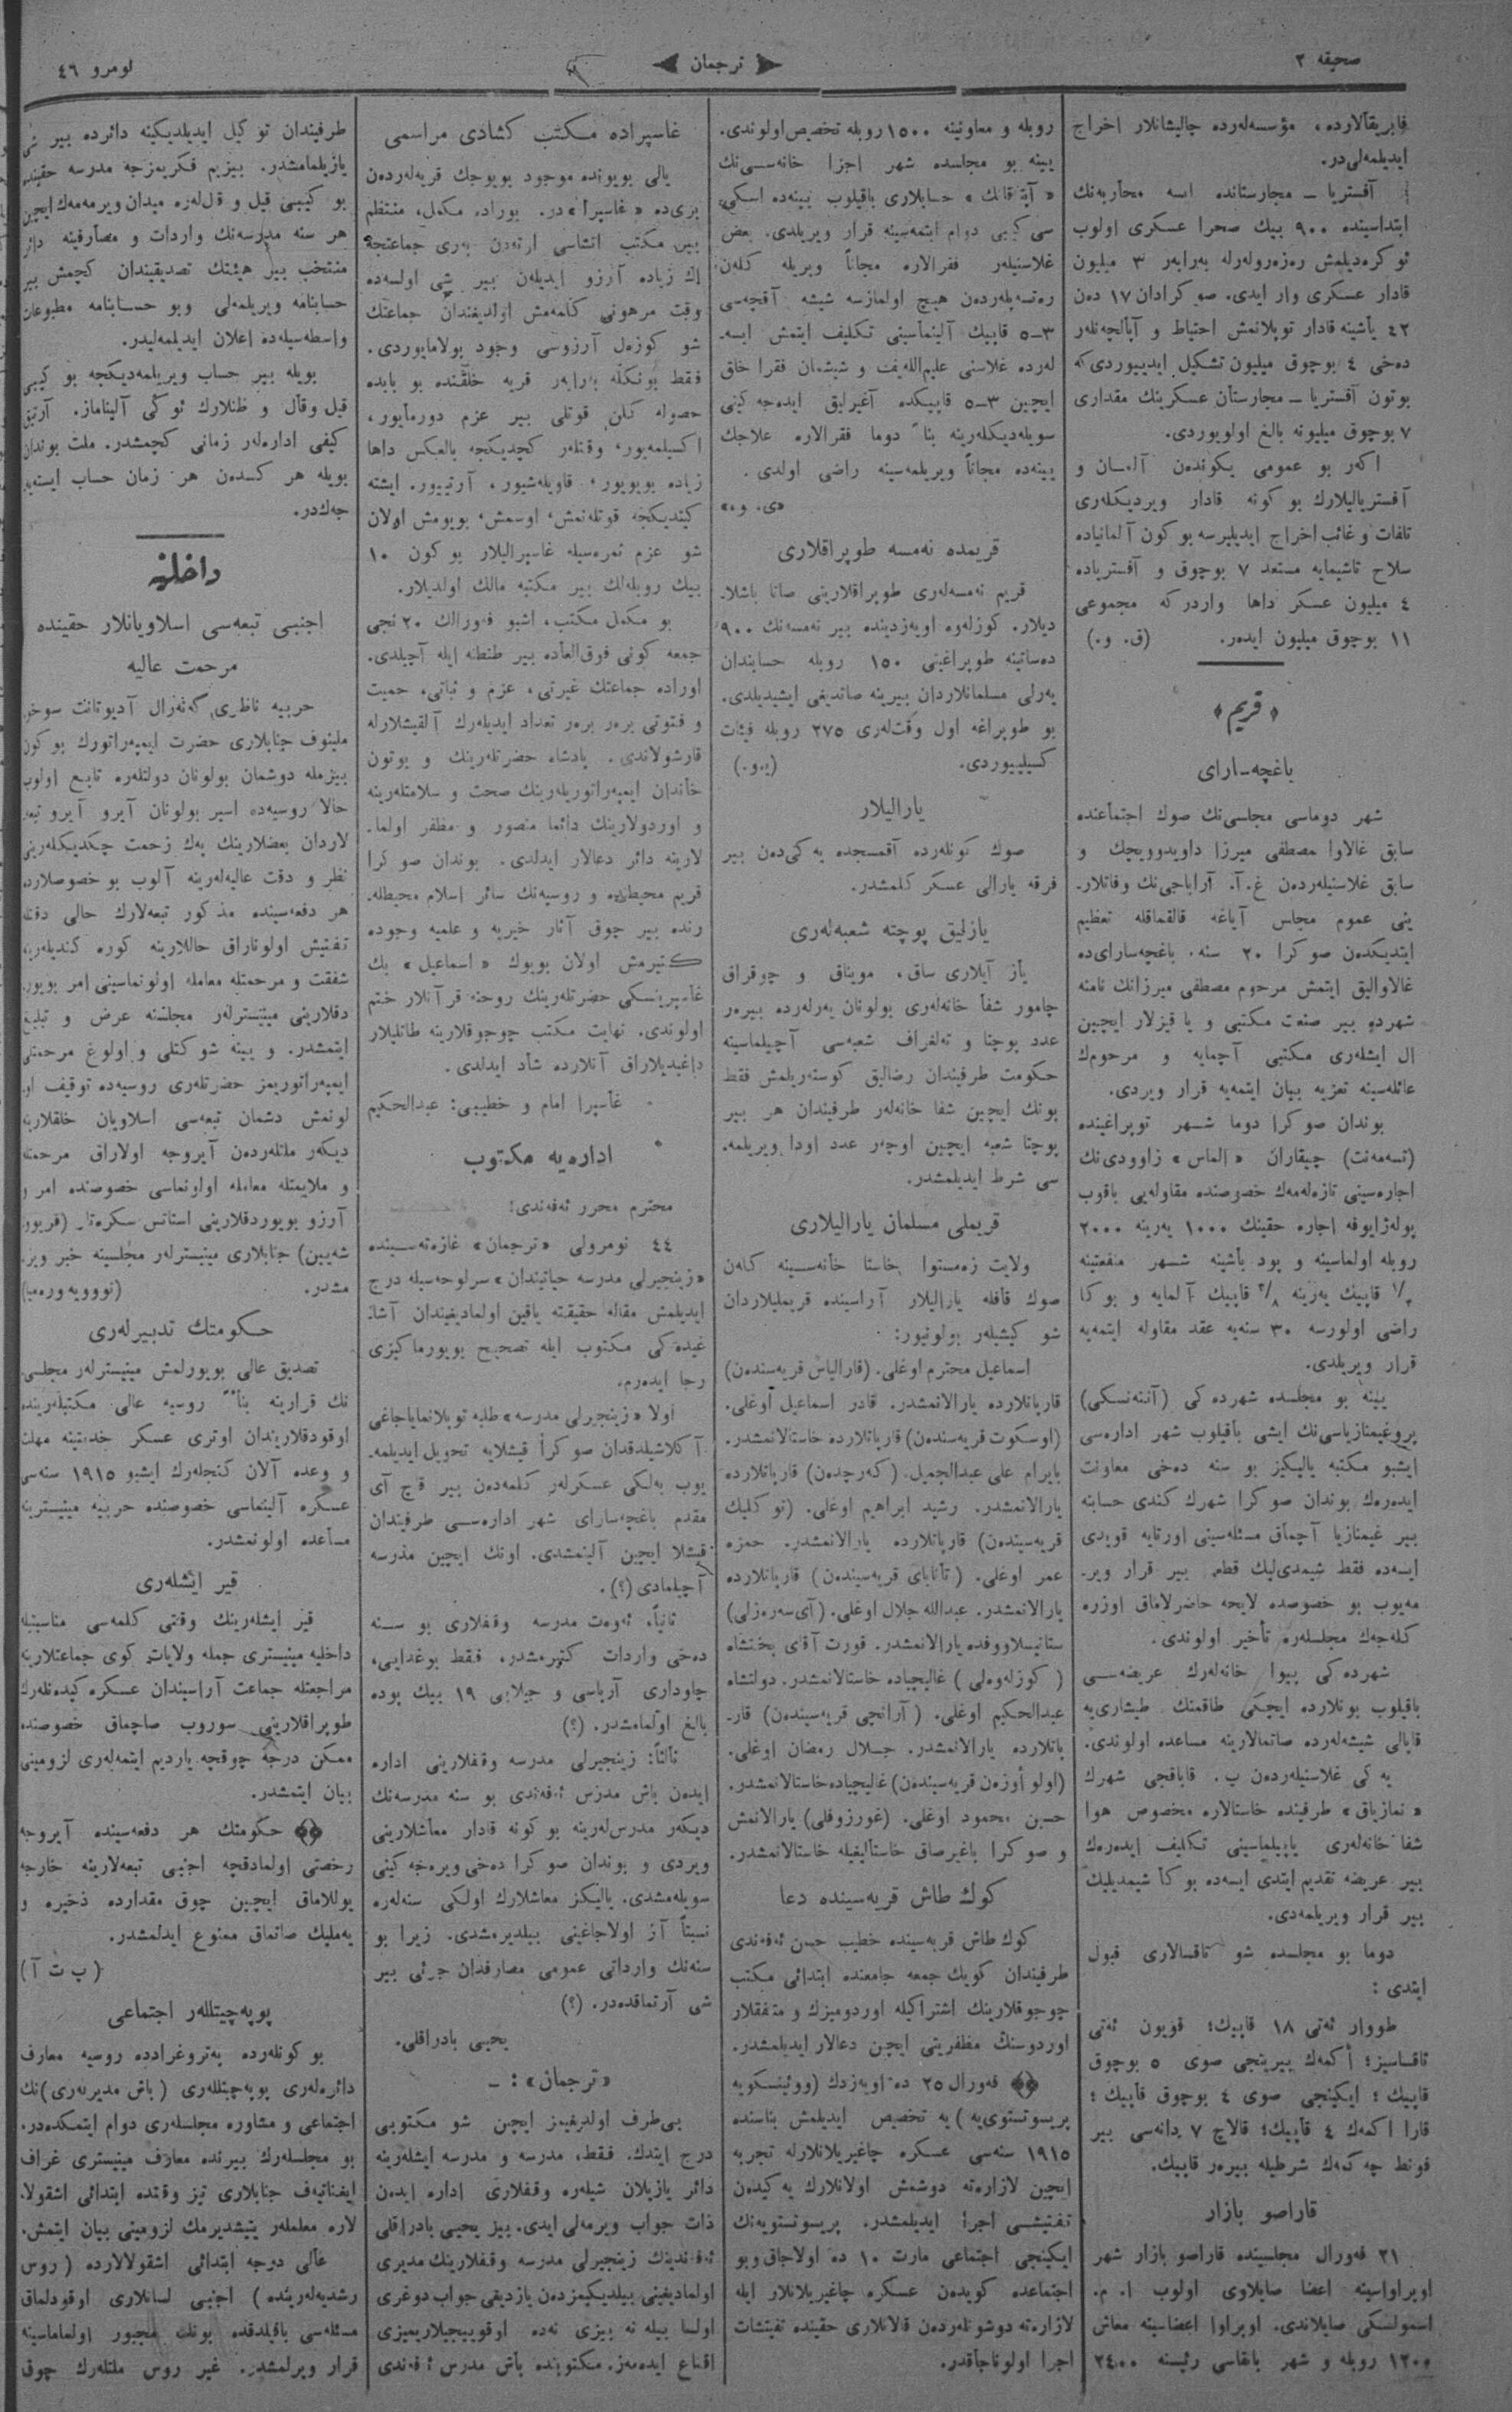 صحیفه ۲
ترجمان
نومرو ٤٦
فابریقالارده، مؤسسه‌لرده چالیشانلار اخراج
ایدیلمه‌لی‌در.
آفستریا ــ مجارستانده ایسه محاربه‌نك
ابتداسینده ۹۰۰ بیك صحرا عسکری اولوب
ئوکره‌دیلمش ره‌زه‌رولرله به‌رابه‌ر ۳ میلیون
قادار عسکری وار ایدی. صوکرادان ۱۷ دن
٤۲ یاشینه قادار توپلانمش احتیاط و آپالچه‌نلر
ده‌خی ٤ بوچوق میلیون تشکیل ایدییوردی که
بوتون آفستریا ــ مجارستان عسکرینك مقداری
۷ بوچوق میلیونه بالغ اولویوردی.
اکه‌ر بو عمومی یکوندن آلمان و
آفستریالیلارك بو کونه قادار ویردیکلری
تلفات و غائب اخراج ایدیلیرسه بو کون آلمانیاده
سلاح تاشیمایه مستعد ۷ بوچوق و آفستریاده
٤ میلیون عسکر داها واردرکه مجموعی
۱۱ بوچوق میلیون ایده‌ر. (ق. و.)
﴿ قریم ﴾
باغچه‌سارای
شهر دوماسی مجلسی‌نك صوك اجتماعنده
سابق غالاوا مصطفی میرزا داویدوویچك و
سابق غلاسنیلردن غ. آ. آراباجی‌نك وفاتلار-
ینی عموم مجلس آیاغه قالقماقله تعظیم
ایتدیکدن صوکرا ۲۰ سنه باغچه‌سارای‌ده
غالاوالیق ایتمش مرحوم مصطفی میرزانك نامنه
شهرده بیر صنعت مکتبی و یا قیزلار ایچین
ال ایشلری مکتبی آچمایه و مرحومك
عائله‌سینه تعزیه بیان ایتمه‌یه قرار ویردی.
بوندان صوکرا دوما شهر توپراغینده
(تسه‌مه‌نت) چیقاران «الماس» زاوودی‌نك
اجاره‌سینی تازه‌له‌مه‌ك خصوصنده مقاوله‌یی باقوب
پوله‌ژایوفه اجاره حقینك ۱۰۰۰ یه‌رینه ۲۰۰۰
روبله اولماسینه و پود باشینه شهر منفعتینه
قاپیك یه‌رینه قاپیك آلمایه و بوکا
راضی اولورسه ۳۰ سنه‌یه عقد مقاوله ایتمه‌یه
قرار ویریلدی.
یینه بو مجلسده شهرده‌کی (آننه‌نسکی)
پروغیمنازیاسی‌نك ایشی باقیلوب شهر اداره‌سی
ایشبو مکتبه یالیکیز بو سنه ده‌خی معاونت
ایده‌ره‌ك بوندان صوکرا شهرك کندی حسابنه
بیر غیمنازیا آچماق مسئله‌سینی اورتایه قویدی
ایسه‌ده فقط شیمدی‌لیك قطعی بیر قرار ویر-
مه‌یوب بو خصوصده لایحه حاضرلاماق اوزره
کله‌جه‌ك مجلسلره تأخیر اولوندی.
شهرده‌کی پیوا خانه‌لرك عریضه‌سی
باقیلوب بونلارده ایچکی طاقمنك طیشاری‌یه
قاپالی شیشه‌لرده صاتمالارینه مساعده اولوندی.
یه‌کی غلاسنیلردن ب. قاباقجی شهرك
«نمازیاق» طرفینده خاستالاره مخصوص هوا
شفا خانه‌لری یاپیلماسینی تکلیف ایده‌ره‌ك
بیر عریضه تقدیم ایتدی ایسه‌ده بوکا شیمدیلیك
بیر قرار ویریلمه‌دی.
دوما بو مجلسده شو تاقسالاری قبول
ایتدی:
طووار ئه‌تی ۱۸ قاپیك؛ قویون ئه‌تی
تاقساسیز؛ اکمه‌ك بیرینجی صوی ٥ بوچوق
قاپیك؛ ایکینجی صوی ٤ بوچوق قاپیك؛
قارا اکمه‌ك ٤ قاپیك؛ قالاچ ۷ دانه‌سی بیر
فونط چه‌که‌ك شرطیله بیره‌ر قاپیك.
قاراصو بازار
۲۱ فه‌ورال مجلسینده قاراصو بازار شهر
اوپراواسینه اعضا صایلاوی اولوب ا. م.
اسمولسکی صایلاندی. اوپراوا اعضاسینه معاش
۱۲۰۰ روبله و شهر بانقاسی رئیسنه ۲٤۰۰
روبله و معاونینه ۱٥۰۰ روبله تخصیص اولوندی.
یینه بو مجلسده شهر اجزا خانه‌سی‌نك
حسابلاری باقیلوب یینه‌ده اسکی-
سی کیبی دوام ایتمه‌سینه قرار ویریلدی. بعض
غلاسنیلر فقرالاره مجاناً ویریله کلن
ره‌تسه‌پلردن هیچ اولمازسه شیشه آقچه‌سی
۳-٥ قاپیك آلینماسینی تکلیف ایتمش ایسه-
لرده غلاسنی علیم‌اللهیف و شیشمان فقرا خلق
ایچین ۳-٥ قاپیکده آغیرلیق ایده‌جه‌کینی
سویله‌دیکلرینه بناءً دوما فقرالاره علاجك
یینه‌ده مجاناً ویریلمه‌سینه راضی اولدی.
«ی. و.»
قریمده نه‌مسه طوپراقلاری
قریم نه‌مسه‌لری طوپراقلارینی صاتا باشلا-
دیلار. کوزله‌وه اویه‌زدینده بیر نه‌مسه‌نك ۹۰۰
ده‌ساتینه طوپراغینی ۱٥۰ روبله حسابندان
یه‌رلی مسلمانلاردان بیرینه صاتدیغی ایشیدیلدی.
بو طوپراغه اول وقتلری ۲۷٥ روبله فیئات
کسیلییوردی. (ی.و.)
یارالیلار
صوك کونلرده آقمسجده یه‌کی‌دن بیر
فرقه یارالی عسکر کلمشدر.
یازلیق پوچته شعبه‌لری
یاز آیلاری ساق، مویناق و چوقراق
چامور شفا خانه‌لری بولونان یه‌رلرده بیره‌ر
عدد پوچتا و ته‌لغراف شعبه‌سی آچیلماسینه
حکومت طرفیندان رضالیق کوسته‌ریلمش فقط
بونك ایچین شفا خانه‌لر طرفیندان هر بیر
پوچتا شعبه ایچین اوچه‌ر عدد اودا ویریلمه-
سی شرط ایدیلمشدر.
قریملی مسلمان یارالیلاری
ولایت زه‌مستوا خاستا خانه‌سینه کلن
صوك قافله یارالیلار آراسینده قریملیلاردان
شو کیشیلر بولونیور:
اسماعیل محترم اوغلی. (قارالپاس قریه‌سندن)
قارپاتلارده یارالانمشدر. قادر اسماعیل اوغلی.
(اوسکوت قریه‌سندن) قارپاتلارده خاستالانمشدر.
بایرام علی عبدالجمیل. (که‌رچدن) قارپاتلارده
یارالانمشدر. رشید ابراهیم اوغلی.
قریه‌سیندن) قارپاتلارده یارالانمشدر. حمزه
عمر اوغلی. قارپاتلارده
یارالانمشدر. عبدالله جلال اوغلی. (آی‌سه‌ره‌زلی)
ستانیسلاووفده یارالانمشدر. قورت آقای بختشاه
(کوزله‌وه‌لی) غالیچیاده خاستالانمشدر. دولتشاه
عبدالحکیم اوغلی. (آرانچی قریه‌سیندن) قار-
پاتلارده یارالانمشدر. جلال رمضان اوغلی.
(اولو اوزن قریه‌سیندن) غالیچیاده خاستالانمشدر.
حسن محمود اوغلی. (غورزوفلی) یارالانمش
و صوکرا باغیرصاق خاستالیغیله خاستالانمشدر.
کوك طاش قریه‌سینده دعا
کوك طاش قریه‌سینده خطیب حسن ئه‌فه‌ندی
طرفیندان کویك جمعه جامعنده ابتدائی مکتب
چوجوقلارینك اشتراکیله اوردومیزك و متفقلار
اوردوسنك مظفریتی ایچین دعالار ایدیلمشدر.
فه‌ورال ۲٥ ده اویه‌زدك (ووئینسکویه
پریسوتستوی‌یه) یه تخصیص ایدیلمش بناسنده
۱۹۱٥ سنه‌سی عسکره چاغیریلانلارله تجربه
ایچین لازاره‌ته دوشمش اولانلارك یه‌کیدن
تفتیشی اجرا ایدیلمشدر. پریسوتستویه‌نك
ایکینجی اجتماعی مارت ۱۰ ده اولاجاق و بو
اجتماعده کویدن عسکره چاغیریلانلار ایله
لازاره‌ته دوشونلردن قالانلاری حقینده تفتیشات
اجرا اولوناجاقدر.
غاسپراده مکتب کشادی مراسمی
یالی بویونده موجود بویوجك قریه‌لردن
بری‌ده «غاسپرا» در. بوراده مکمل، منتظم
بیر مکتب انشاسی ارته‌دن به‌ری جماعتجه
اك زیاده آرزو ایدیلن بیر شی اولسه‌ده
وقت مرهونی کلمه‌مش اولدیغندان جماعتك
شو کوزه‌ل آرزوسی وجود بولامایوردی.
فقط بونکله به‌رابه‌ر قریه خلقنده بو بابده
حصوله کلن قوتلی بیر عزم دورمایور،
اکسیلمه‌یور، وقتلر کچدیکجه بالعکس داها
زیاده بویویور، قاویله‌شیور، آرتییور. ایشته
کیتدیکجه قوتله‌نمش، اوسمش، بویومش اولان
شو عزم ثمره‌سیله غاسپرالیلار بو کون ۱۰
بیك روبله‌لك بیر مکتبه مالك اولدیلار.
بو مکمل مکتب، اشبو فه‌ورالك ۲۰ نجی
جمعه کونی فوق‌العاده بیر طنطنه ایله آچیلدی.
اوراده جماعتك غیرتی، عزم و ثباتی، حمیت
و فتوتی بره‌ر بره‌ر تعداد ایدیله‌رك آلقیشلارله
قارشولاندی. پادشاه حضرتلرینك و بوتون
خاندان ایمپه‌راتوریله‌رینك صحت و سلامتلرینه
و اوردولارینك دائما منصور و مظفر اولما-
لارینه دائر دعالار ایدلدی. بوندان صوکرا
قریم محیطنده و روسیه‌نك سائر اسلام محیطله-
رنده بیر چوق آثار خیریه و علمیه وجوده
کتیرمش اولان بویوك «اسماعیل» بك
غاسپرینسکی حضرتلرینك روحنه قرآنلار ختم
اولوندی. نهایت مکتب چوجوقلارینه طاتلیلار
داغیدیلاراق آنلارده شاد ایدلدی.
غاسپرا امام و خطیبی: عبدالحکیم
اداره‌یه مکتوب
محترم محرر ئه‌فه‌ندی!
٤٤ نومرولی «ترجمان» غازه‌ته‌سینده
«زینجیرلی مدرسه حیاتیندان» سرلوحه‌سیله درج
ایدیلمش مقاله حقیقته یاقین اولمادیغیندان آشا-
غیده‌کی مکتوب ایله تصحیح بویورماکیزی
رجا ایده‌رم.
اولا «زینجیرلی مدرسه» طلبه توپلانمایاجاغی
آکلاشیلدقدان صوکرا قیشلایه تحویل ایدیلمه-
یوب به‌لکی عسکرلر کلمه‌دن بیر قاچ آی
مقدم باغچه‌سارای شهر اداره‌سی طرفیندان
قیشلا ایچین آلینمشدی. اونك ایچین مدرسه
آچیلمادی (؟).
ثانیاً، ئه‌وه‌ت مدرسه وقفلاری بو سنه
ده‌خی واردات کتیرمشدر، فقط بوغدایی،
چاوداری آرپاسی و جیلابی ۱۹ بیك پوده
بالغ اولمامشدر. (؟)
ثالثاً: زینجیرلی مدرسه وقفلارینی اداره
ایدن باش مدرس ئه‌فه‌ندی بو سنه مدرسه‌نك
دیکه‌ر مدرس‌لرینه بو کونه قادار معاشلارینی
ویردی و بوندان صوکرا ده‌خی ویره‌جه‌کینی
سویله‌مشدی. یالیکز معاشلارك اولکی سنه‌لره
نسبتاً آز اولاجاغینی بیلدیرمشدی. زیرا بو
سنه‌نك وارداتی عمومی مصارفدان جزئی بیر
شی آرتماقده‌در. (؟)
یحیی بادراقلی.
«ترجمان»: ــ
بی‌طرف اولدیغیمز ایچین شو مکتوبی
درج ایتدك. فقط، مدرسه و مدرسه ایشلرینه
دائر یازیلان شیلره وقفلاری اداره ایدن
ذات جواب ویرمه‌لی ایدی. بیز یحیی بادراقلی
ئه‌فه‌ندینك زینجیرلی مدرسه وقفلارینك مدیری
اولمادیغینی بیلدیکیمزدن یازدیغی جواب دوغری
اولسا بیله نه بیزی نه‌ده اوقوییجیلاریمیزی
اقناع ایده‌مه‌ز. مکتوبنده باش مدرس ئه‌فه‌ندی
طرفیندان توکیل ایدیلدیکینه دائرده بیر شی
یازیلمامشدر. بیزیم فکریمزجه مدرسه حقینده
بو کیبی قیل و قال‌لره میدان ویرمه‌مه‌ك ایچین
هر سنه مدرسه‌نك واردات و مصارفینه دائر
منتخب بیر هیئتك تصدیقیندان کچمش بیر
حسابنامه ویریلمه‌لی و بو حسابنامه مطبوعات
واسطه‌سیله‌ده اعلان ایدیلمه‌لیدر.
بویله بیر حساب ویریلمه‌دیکجه بو کیبی
قیل وقال و ظنلارك ئوکی آلیناماز. آرتیق
کیفی اداره‌لر زمانی کچمشدر. ملت بوندان
بویله هر کسدن هر زمان حساب ایسته‌یه-
جه‌كدر.
داخلیه
اجنبی تبعه‌سی اسلاویانلار حقینده
مرحمت عالیه
حربیه ناظری که‌نه‌رال آدیوتانت سوخو-
ملینوف جنابلاری حضرت ایمپه‌راتورك بو کون
بیزمله دوشمان بولونان دولتلره تابع اولوب
حالا روسیه‌ده اسیر بولونان آیرو آیرو تبعه-
لاردان بعضلارینك په‌ك زحمت چکدیکلرینی
نظر و دقت عالیه‌لرینه آلوب بو خصوصلارده
هر دفعه‌سینده مذکور تبعه‌لارك حالی دقتله
تفتیش اولوناراق حاللارینه کوره کندیلرینه
شفقت و مرحمتله معامله اولونماسینی امر بویور-
دقلارینی مینیسترلر مجلسنه عرض و تبلیغ
ایتمشدر. و یینه شوکتلی و اولوغ مرحمتلی
ایمپه‌راتوریمز حضرتلری روسیه‌ده توقیف او-
لونمش دشمان تبعه‌سی اسلاویان خلقلارینه
دیکه‌ر ملتلردن آیروجه اولاراق مرحمتله
و ملایمتله معامله اولونماسی خصوصنده امر و
آرزو بویوردقلارینی استاتس سکره‌تار (قریوو-
شه‌یین) جنابلاری مینیسترلر مجلسینه خبر ویر-
مشدر. (نووویه وره‌میا)
حکومتك تدبیرلری
تصدیق عالی بویورلمش مینیسترلر مجلسی-
نك قرارینه بناءً روسیه عالی مکتبلرینده
اوقودقلاریندان اوتری عسکر خدمتینه مهلت
و وعده آلان کنجلرك ایشبو ۱۹۱٥ سنه‌سی
عسکره آلینماسی خصوصنده حربیه مینیسترینه
مساعده اولونمشدر.
قیر ایشلری
قیر ایشلرینك وقتی کلمه‌سی مناسبتیله
داخلیه مینیستری جمله ولایات کوی جماعتلارینه
مراجعتله جماعت آراسیندان عسکره کیدنلرك
طوپراقلارینی سوروب صاچماق خصوصنده
ممکن درجه چوقجه یاردیم ایتمه‌لری لزومینی
بیان ایتمشدر.
حکومتك هر دفعه‌سینده آیروجه
رخصتی اولمادقجه اجنبی تبعه‌لارینه خارجه
یوللاماق ایچین چوق مقدارده ذخیره و
یه‌ملیك صاتماق ممنوع ایدلمشدر.
(پ ت آ)
پوپه‌چیتللر اجتماعی
بو کونلرده په‌تروغرادده روسیه معارف
دائره‌لری پوپه‌چیتللری (باش مدیرلری) نك
اجتماعی و مشاوره مجلسلری دوام ایتمکده‌در.
بو مجلسلرك بیرنده معارف مینیستری غراف
ایغناتیه‌ف جنابلاری تیز وقتده ابتدائی اشقولا-
لاره معلملر یتیشدیرمك لزومینی بیان ایتمش.
عالی درجه ابتدائی اشقولالارده (روس
رشدیه‌لرینده) اجنبی لسانلاری اوقودلماق
مسئله‌سی باقیلدقده بونك مجبور اولماماسینه
قرار ویرلمشدر. غیر روس ملتلرك چوق